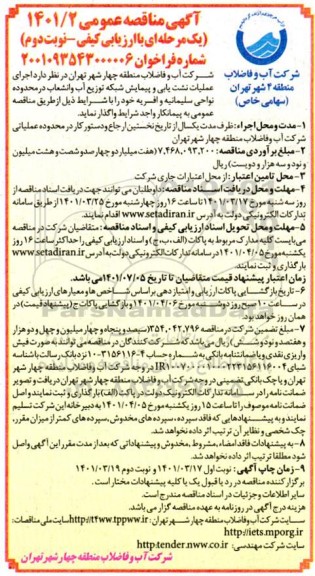 آگهی مناقصه عمومی ۱۴۰۱/۲
(یک مرحله‌ای با ارزیابی کیفی – نوبت دوم)
شماره فراخوان ۲۰۰۱۰۹۳۵۴۳۰۰۰۰۰۶
شرکت آب و فاضلاب
منطقه ۴ شهر تهران
(سهامی خاص)
شرکت آب و فاضلاب منطقه چهار شهر تهران در نظر دارد اجرای
عملیات نشت یابی و پیمایش شبکه توزیع آب وانشعاب در محدوده
نواحی سلیمانیه و افسریه خود را با شرایط ذیل از طریق مناقصه
عمومی به پیمانکار واجد شرایط واگذار نماید.
۱- مدت و محل اجراء: ظرف مدت یکسال از تاریخ نخستین ارجاع و دستور کار در محدوده عملیاتی
شرکت آب وفاضلاب منطقه چهار شهر تهران
۲- مبلغ برآوردی مناقصه: ۷,۴۶۸,۰۹۳,۲۰۰ (هفت میلیارد و چهارصد و شصت و هشت میلیون
و نود و سه هزار و دویست) ریال
۳- محل تامین اعتبار: از محل اعتبارات جاری شرکت
۴- مهلت و محل دریافت اسناد مناقصه: داوطلبان می توانند جهت دریافت اسناد مناقصه از
روز سه شنبه مورخ ۱۴۰۱/۰۳/۱۷ تا ساعت ۱۶ روز چهارشنبه مورخ ۱۴۰۱/۰۳/۲۵ از طریق سامانه
تدارکات الکترونیکی دولت به آدرس www.setadiran.ir اقدام نمایند.
۵- مهلت ومحل تحویل اسناد ارزیابی کیفی و اسناد مناقصه: متقاضیان شرکت در مناقصه
می‌بایست کلیه مدارک مربوط به پاکات (الف، ب، ج) و اسناد ارزیابی کیفی را حداکثر ساعت ۱۶ روز
یکشنبه مورخ ۱۴۰۱/۰۴/۰۵ در سامانه تدارکات الکترونیکی دولت به آدرس www.setadiran.ir
بارگذاری و ثبت نمایند.
زمان اعتبار پیشنهاد قیمت متقاضیان تا تاریخ ۱۴۰۱/۰۷/۰۵ می باشد.
۶- تاریخ بازگشایی پاکات ارزیابی و امتیازدهی براساس شاخص ها و معیارهای ارزیابی کیفی
در ساعت ۱۰ صبح روز دوشنبه مورخ ۱۴۰۱/۰۴/۰۶ و بازگشایی پاکات ج (پیشنهاد قیمت) در
همان روز خواهد بود.
۷- مبلغ تضمین شرکت در مناقصه ۳۵۴,۰۴۲,۷۹۶ (سیصد و پنجاه و چهار میلیون و چهل و دو هزار
و هفتصد و نود و شش) ریال می باشد که شرکت کنندگان در مناقصه می توانند به صورت فیش
واریزی نقدی و یا ضمانتنامه بانکی به شماره حساب
در وجه شرکت آب و فاضلاب منطقه چهار شهر
تهران و یا چک بانکی تضمینی در وجه شرکت آب و فاضلاب منطقه چهار شهر تهران دریافت و تصویر
ضمانت نامه را در سامانه تدارکات الکترونیکی دولت در پاکت (الف) بارگذاری و ثبت نمایند و اصل
ضمانت نامه موصوف را تا ساعت ۱۵ روز یکشنبه مورخ ۱۴۰۱/۰۴/۰۵ به دبیرخانه این شرکت تسلیم
نمایند و به پیشنهادهایی که فاقد سپرده، سپرده های مخدوش، سپرده های کمتر از میزان مقرر،
چک شخصی و نظایر آن ترتیب اثر داده نخواهد شد.
۸- به پیشنهادات فاقد امضاء، مشروط، مخدوش و پیشنهاداتی که بعد از مدت مقرر این آگهی واصل
شود مطلقا ترتیب اثر داده نخواهد شد.
۹- زمان چاپ آگهی: نوبت اول ۱۴۰۱/۰۳/۱۷ و نوبت دوم ۱۴۰۱/۰۳/۱۹
برگزار کننده مناقصه در رد یا قبول یک یا کلیه پیشنهادات مختار است.
سایر اطلاعات و جزئیات در اسناد مناقصه مندرج است.
هزینه درج آگهی در روزنامه به عهده مناقصه گزار می باشد.
سایت شرکت آب وفاضلاب منطقه چهار شهر تهران: http://t4ww.tpww.ir سایت ملی مناقصات:
http://iets.mporg.ir
سایت شرکت مهندسی: http:tender.nww.co.ir
شرکت آب و فاضلاب منطقه چهار شهر تهران